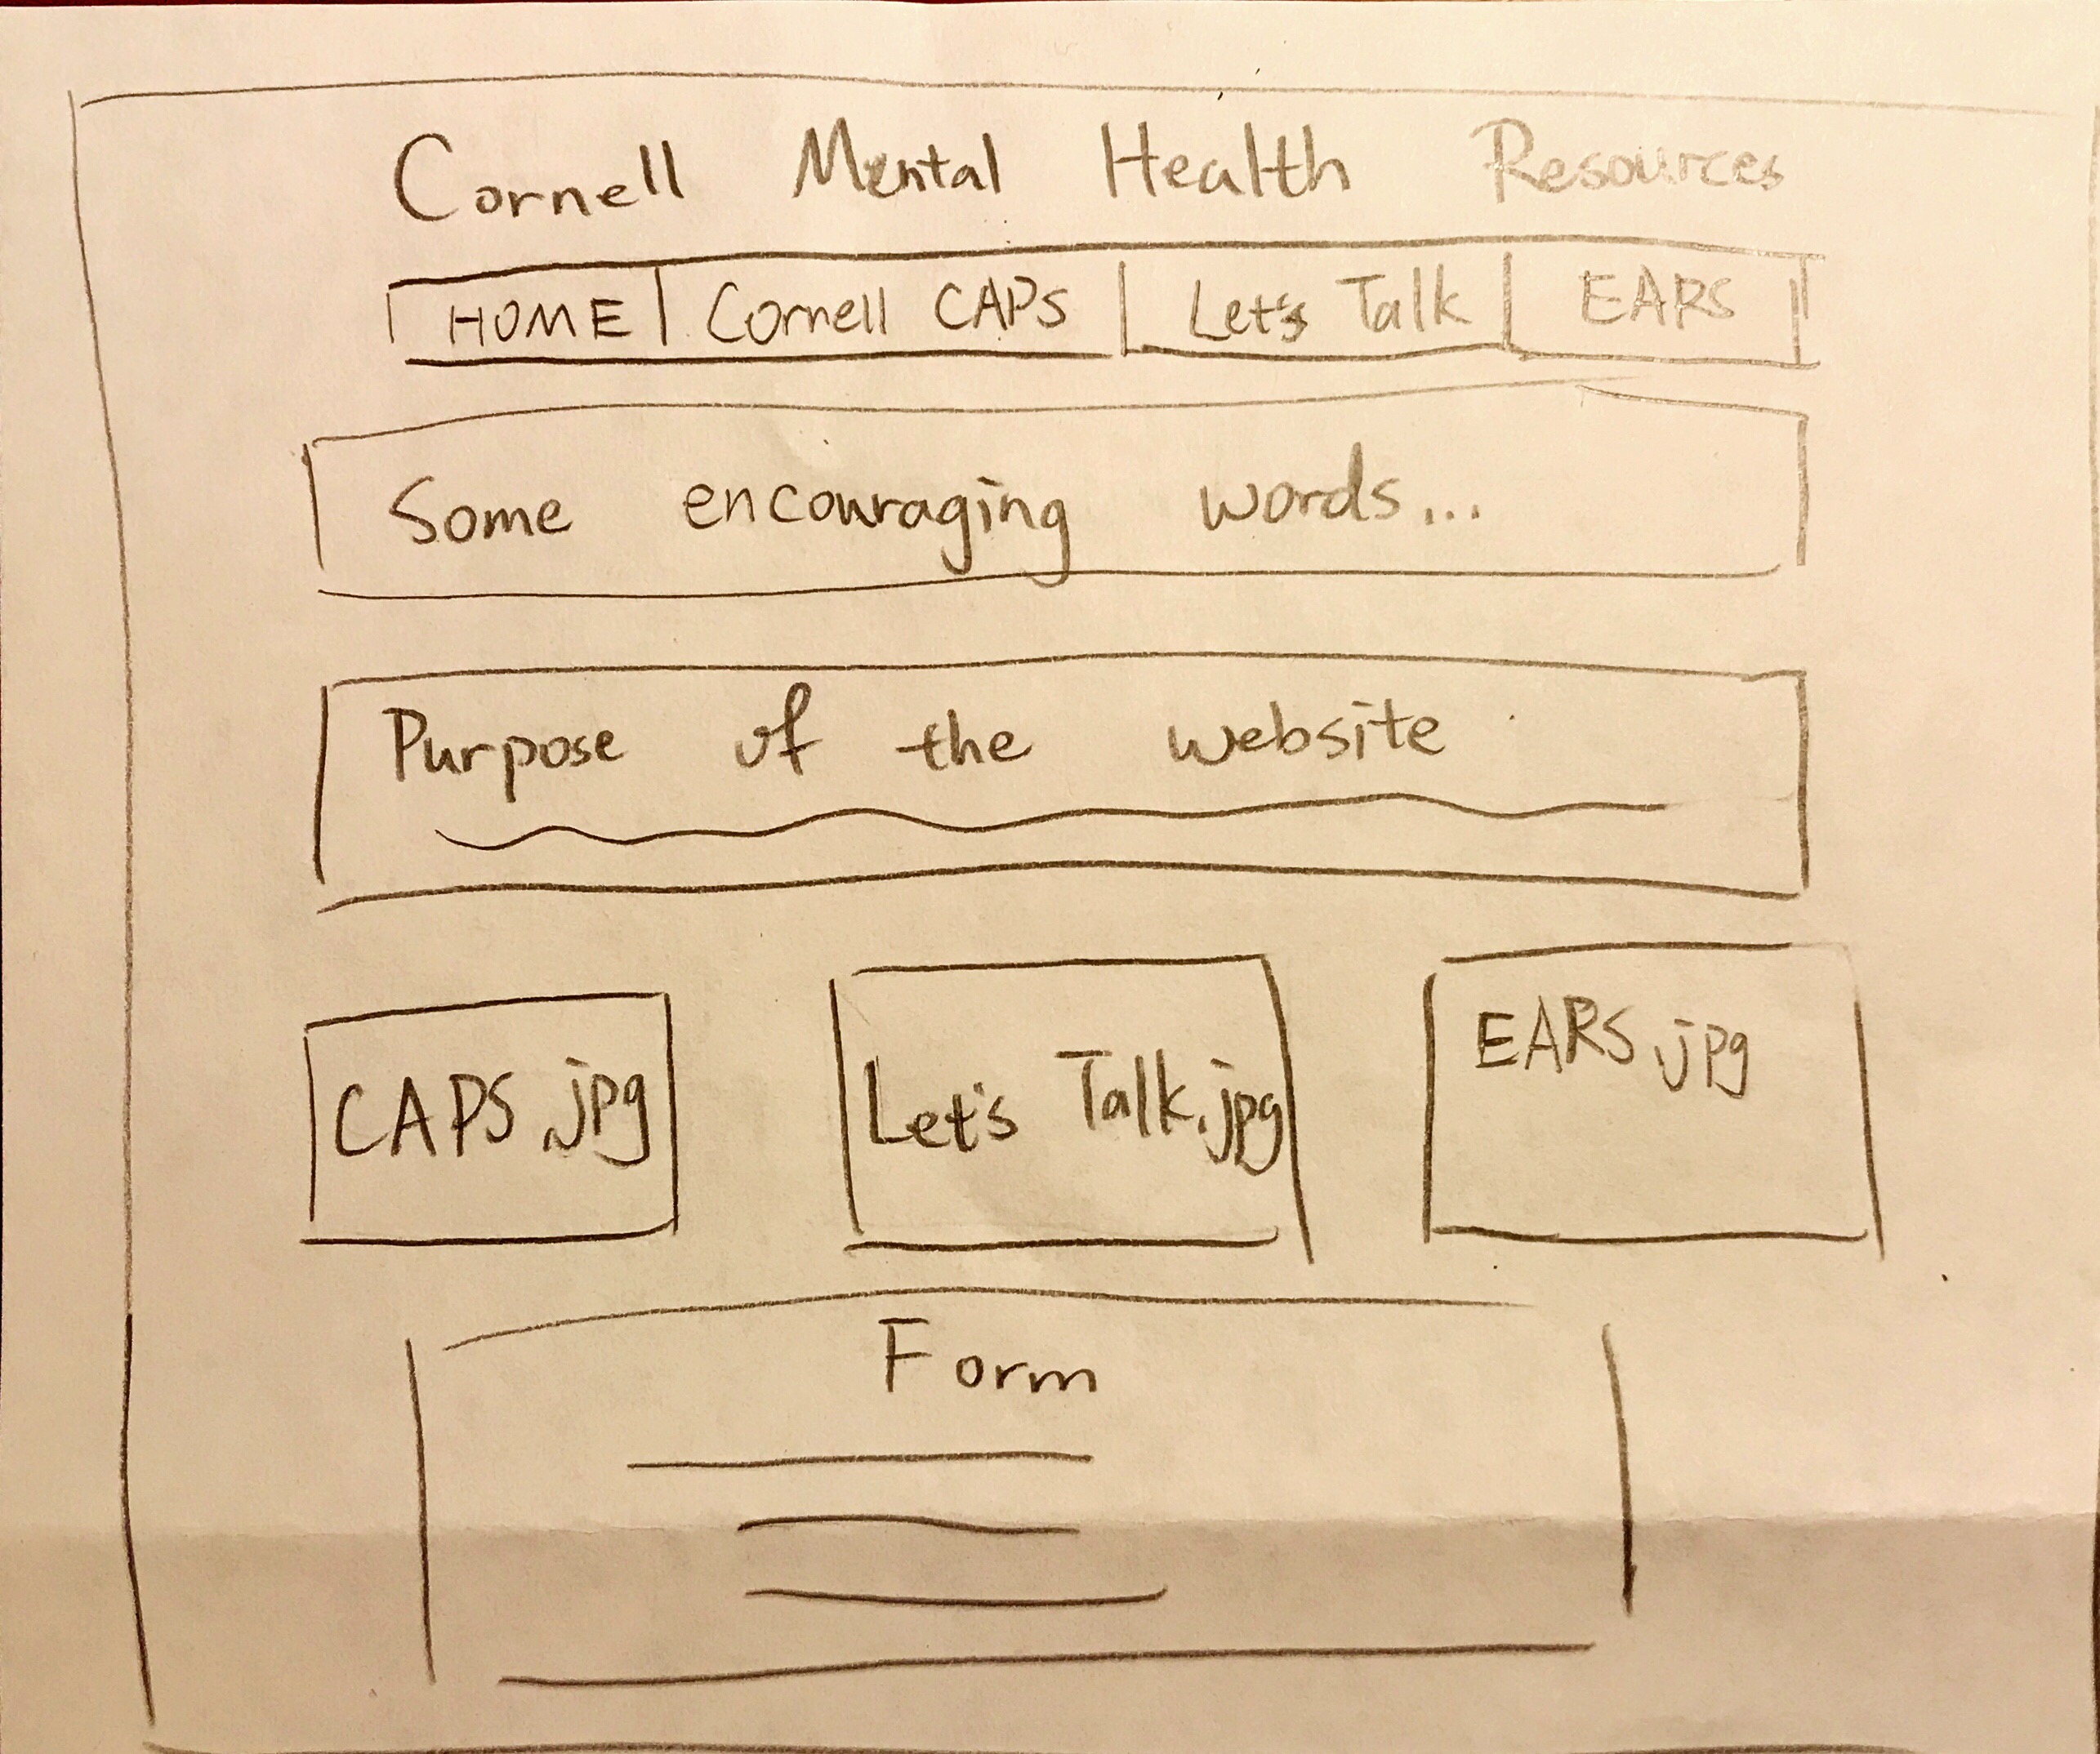 Cornell Mental Health Resources
HOME Cornell CAPS Let's Talk EARS
Some encouraging words...
Purpose of the website
CAPS.jpg Let's Talk.jpg EARS.jpg
Form